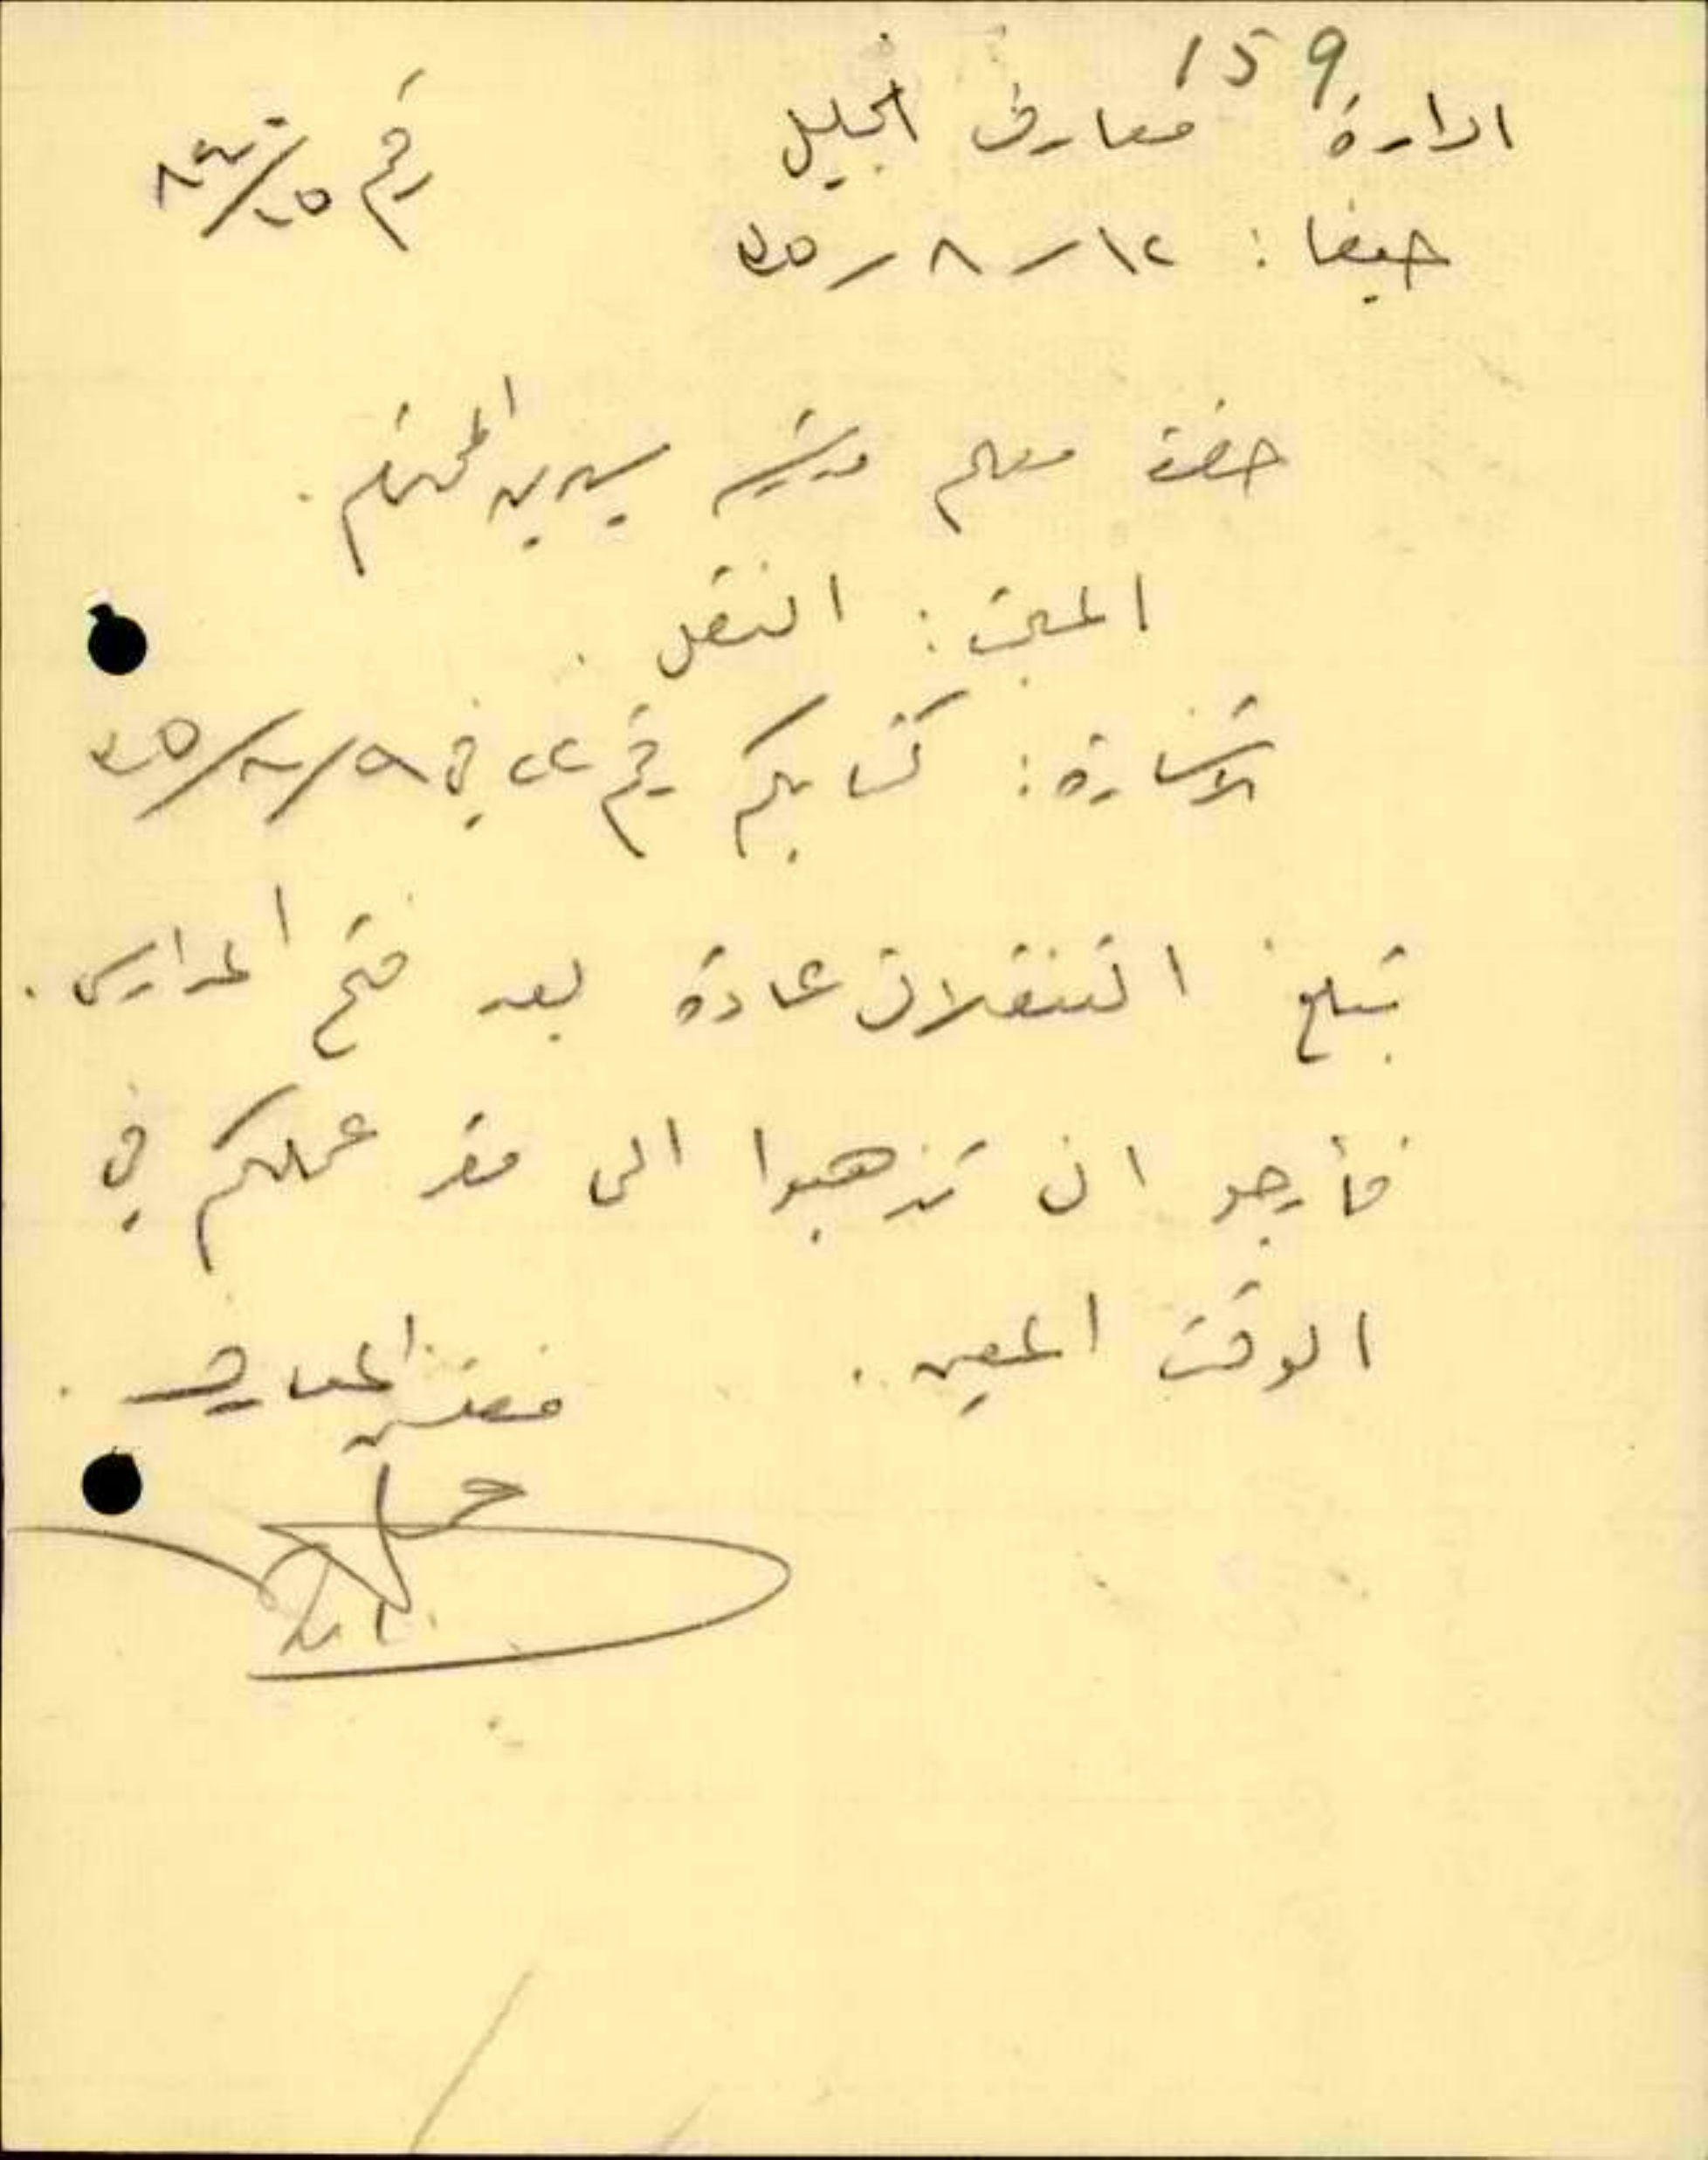 159
ادارة معارف الجليل
حيفا: ١٢ / ٨ / ٣٥
رقم
حضرة معلم مدرسة سيرين المحترم.
المبحث: النقل.
الاشارة: كتابكم رقم ٢٢ في ٩/٨/٣٥
تبلغ التنقلات عادة بعد فتح المدارس.
فأرجو ان تذهبوا الى مقر عملكم في
الوقت المعين.
مفتش المعارف.